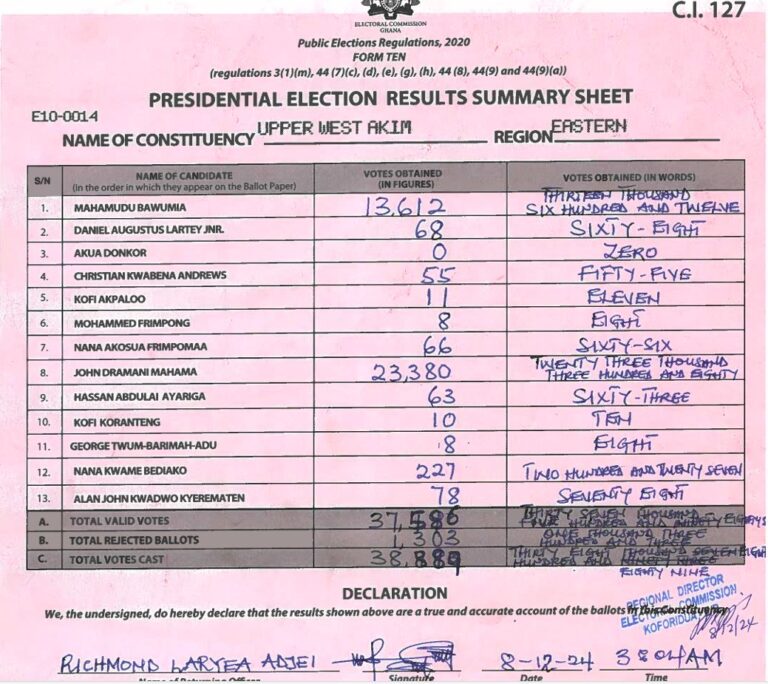 C.I. 127
ELECTORAL COMMISSION
GHANA
Public Elections Regulations, 2020
FORM TEN
(regulations 3(1)(m), 44 (7)(c), (d), (e), (g), (h), 44 (8), 44(9) and 44(9)(a))
PRESIDENTIAL ELECTION RESULTS SUMMARY SHEET
E10-0014
NAME OF CONSTITUENCY UPPER WEST AKIM REGION EASTERN
S/N NAME OF CANDIDATE (In the order in which they appear on the Ballot Paper) VOTES OBTAINED (IN FIGURES) VOTES OBTAINED (IN WORDS)
1. MAHAMUDU BAWUMIA 13,612 THIRTEEN THOUSAND SIX HUNDRED AND TWELVE
2. DANIEL AUGUSTUS LARTEY JNR. 68 SIXTY-EIGHT
3. AKUA DONKOR 0 ZERO
4. CHRISTIAN KWABENA ANDREWS 55 FIFTY-FIVE
5. KOFI AKPALOO 11 ELEVEN
6. MOHAMMED FRIMPONG 8 EIGHT
7. NANA AKOSUA FRIMPOMAA 66 SIXTY-SIX
8. JOHN DRAMANI MAHAMA 23,380 TWENTY THREE THOUSAND THREE HUNDRED AND EIGHTY
9. HASSAN ABDULAI AYARIGA 63 SIXTY-THREE
10. KOFI KORANTENG 10 TEN
11. GEORGE TWUM-BARIMAH-ADU 8 EIGHT
12. NANA KWAME BEDIAKO 227 TWO HUNDRED AND TWENTY SEVEN
13. ALAN JOHN KWADWO KYEREMATEN 78 SEVENTY EIGHT
A. TOTAL VALID VOTES 37,586 THIRTY SEVEN THOUSAND FIVE HUNDRED AND
B. TOTAL REJECTED BALLOTS 1,303 ONE THOUSAND THREE HUNDRED AND THREE
C. TOTAL VOTES CAST 38,889 THIRTY EIGHT THOUSAND EIGHT HUNDRED AND
EIGHTY NINE
DECLARATION
We, the undersigned, do hereby declare that the results shown above are a true and accurate account of the ballots in this Constituency
REGIONAL DIRECTOR
ELECTORAL COMMISSION
KOFORIDUA
8/12/24
RICHMOND LARYEA ADJEI 8-12-24 3:50 AM
Name of Returning Officer Signature Date Time